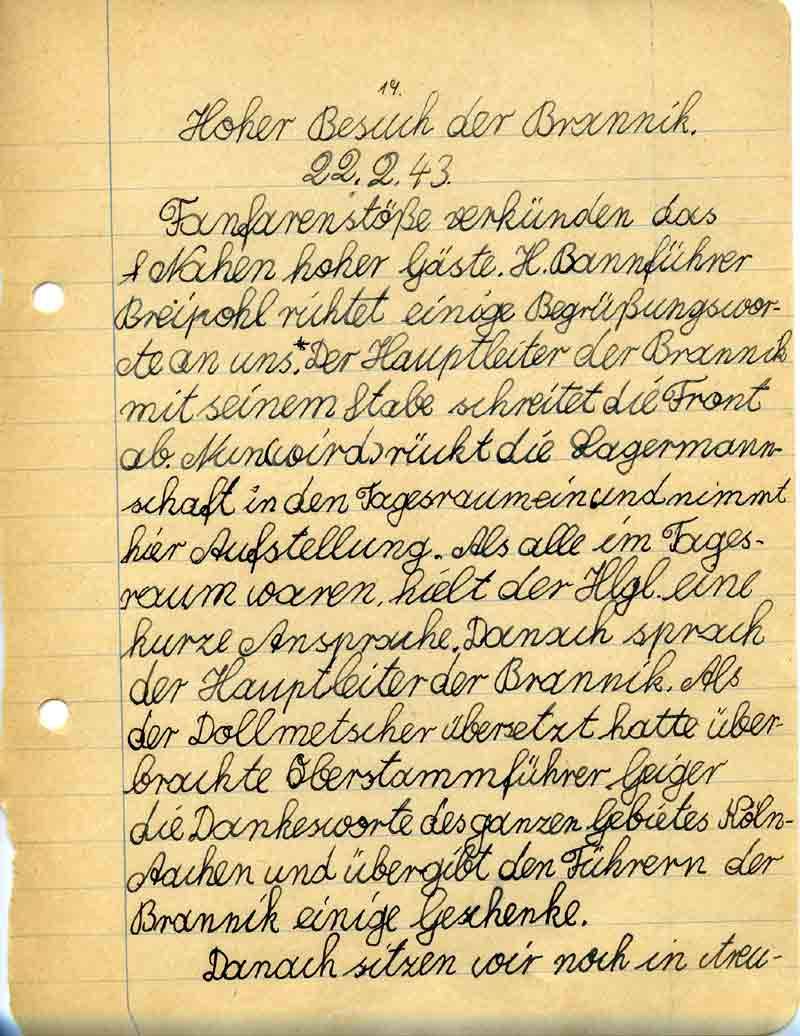 14.
Hoher Besuch der Brannik.
22.2.43.
Fanfarenstöße verkünden das
Nahen hoher Gäste. H. Bannführer
Breipohl richtet einige Begrüßungswor-
te an uns.* Der Hauptleiter der Brannik
mit seinem Stabe schreitet die Front
ab. Nun (wird) rückt die Lagermann-
schaft in den Tagesraum ein und nimmt
hier Aufstellung. Als alle im Tages-
raum waren, hielt der Hlgl. eine
kurze Ansprache. Danach sprach
der Hauptleiter der Brannik. Als
der Dollmetscher übersetzt hatte über-
brachte Oberstammführer Geiger
die Dankesworte des ganzen Gebietes Köln-
Aachen und übergibt den Führern der
Brannik einige Geschenke.
Danach sitzen wir noch in treu-